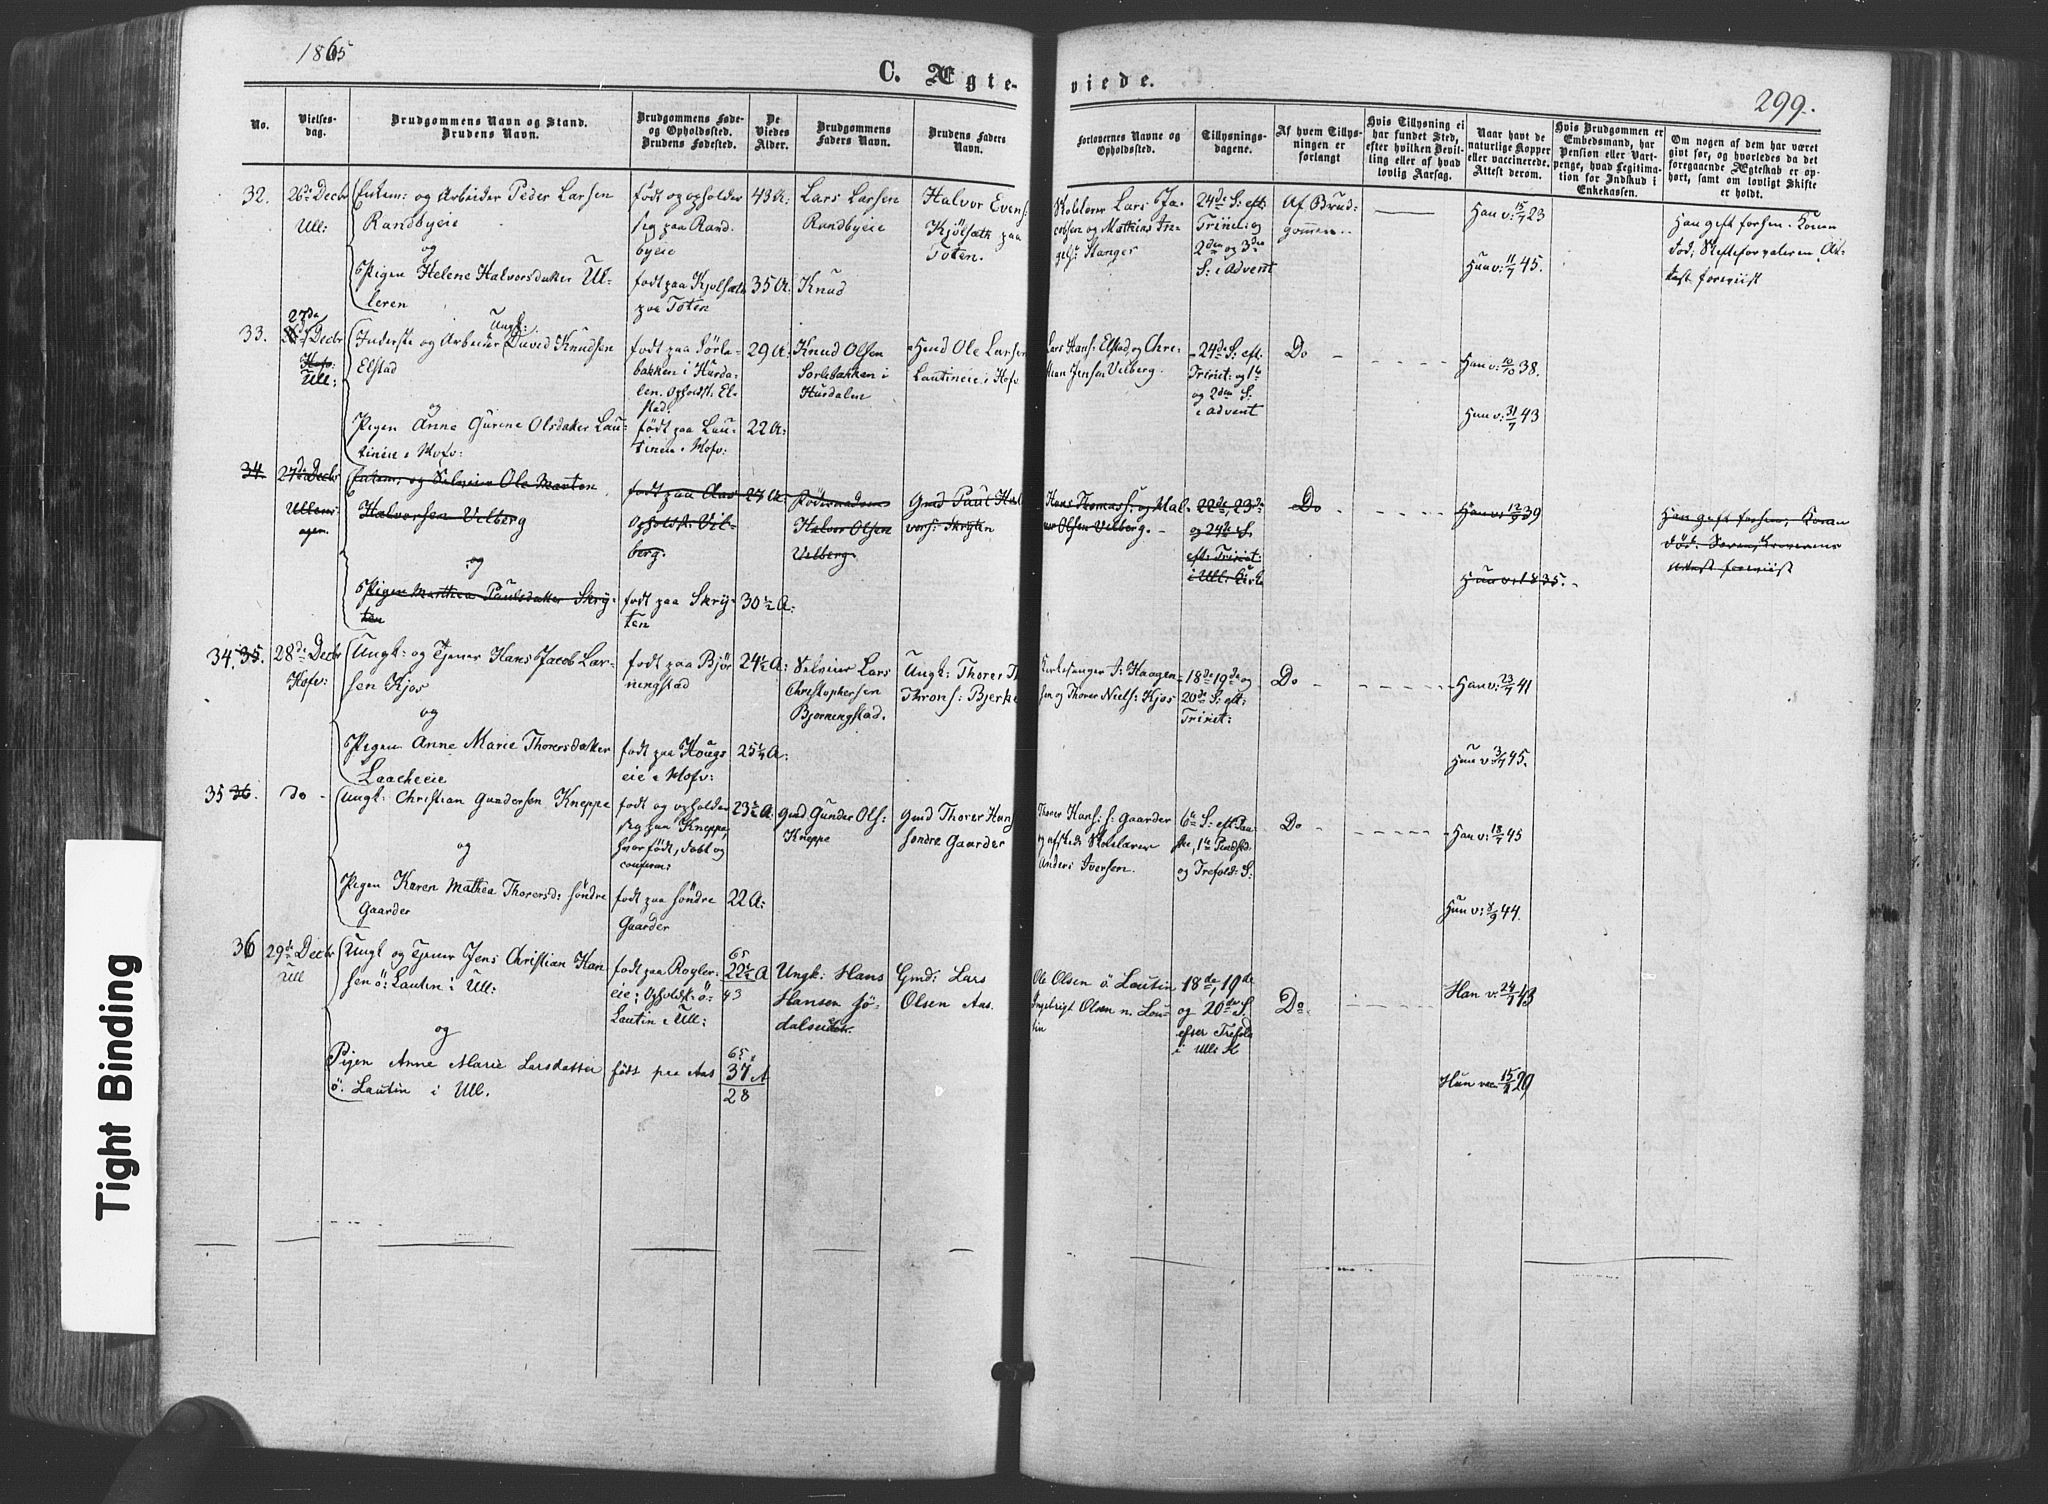 1865
C. Ægte-
viede.
299.
No.
Vielses-
dag.
Brudgommens Navn og Stand.
Brudens Navn.
Brudgommens Føde-
og Opholdssted.
Brudens Fødested.
De
Viedes
Alder.
Brudgommens
Faders Navn.
Brudens Faders
Navn.
Forlovernes Navne og
Opholdssted.
Tillysnings-
dagene.
Af hvem Tillys-
ningen er
forlangt
Hvis Tillysning ei
har fundet Sted,
efter hvilken Bevil-
ling eller af hvad
lovlig Aarsag.
Naar havt de
naturlige Kopper
eller vaccinerede.
Attest derom.
Hvis Brudgommen er
Embedsmand, har
Pension eller Vart-
penge, hvad Legitima-
tion for Indskud i
Enkekassen.
Om nogen af dem har været
givt før, og hvorledes da det
foregaaende Ægteskab er op-
hørt, samt om lovligt Skifte
er holdt.
32.
26de Decbr
Ull:
Enkem: og Arbeider Peder Larsen
Randbyeie
og
Pigen Helene Halvorsdatter Ul-
leren
født og opholder
sig paa Rand-
byeie
født paa Kjølsæth
paa Toten
43 A:
35 A:
Lars Larsen
Randbyeie
Knud
Halvor Evens:
Kjølsæth paa
Toten.
Skolelærer Lars Ja-
cobsen og Mathias In-
gels: Stanger
24de S: eft:
Trini: og
2den og 3die
S: i Advent
Af Brud-
gommen
Han v: 15/7 23
Hun v: 11/7 45.
Han gift forhen. Konen
død, Skifteforvalterens At-
test foreviist
33.
27da
Decbr
Hof:
Ull:
Ungk:
Inderste og Arbeider David Knudsen
Elstad
og
Pigen Anne Gurine Olsdatter Lau-
tineie i Hofv:
født paa Sørle-
bakken i Hurda-
len. Opholdst: El-
stad.
født paa Lau-
tineie i Hofv:
29 A:
22 A:
Knud Olsen
Sørlebakken i
Hurdalen
Hmd Ole Larsen
Lautineie i Hofv
Lars Hans: Elstad og Chri-
stian Jensen Velberg.
24de S: eft:
Trinit: og 1te
og 2den S:
i Advent
Do
Han v: 10/10 38.
Hun v: 31/7 43
34
27de Decbr
Ullens-
agen.
Enkem: og Selveier Ole Marten
Halvorsen Velberg
og
Pigen Marthea Paulsdatter Skrÿ-
ten
født paa Aas
Opholdst: Vel-
berg.
født paa Skrÿ-
ten
27 A:
30 ½ A:
Halvor Olsen
Velberg.
Gmd Paul Hal-
vors: Skrÿten
Hans Thomas: og Mal-
Olsen Velberg.
22de, 23de
og 24de S.
eft: Trinit:
i Ull: Kirke
Do
Han v: 12/9 39
Hun v: 1835.
Han gift forhen, Konen
død:
Attest foreviist
34. 35.
28de Decbr
Hofv:
Ungk: og Tjener Hans Jacob Lar-
sen Kjos
og
Pigen Anne Marie Thorersdatter
Laacheeie
født paa Bjør-
ningstad
født paa Houg-
eie i Hofv:
24½ A:
25¼ A:
Selveier Lars
Christophersen
Bjørningstad.
Ungk: Thorer
Throns: Bjerke
Kirkesanger J: Haagen-
sen og Thorer Niels: Kjos
18de 19de og
20de S: eft:
Trinit:
Do
Han v: 23/7 41
Hun v: 3/7 45.
35 36.
do
Ungk: Christian Gundersen Kneppe
og
Pigen Karen Mathea Thorersd: søndre
Gaarder
født og opholder
sig paa Kneppe,
hvor født, døbt og
confirm:
født paa søndre
Gaarder
23½ A:
22 A:
Gmd Gunder Ols:
Kneppe
Gmd Thorer Hans:
søndre Gaarder
Thorer Hans: s: Gaarder
og afskede Skolelærer
Anders Iversen.
6te S: eft Paa-
ske, 1te Pindsed:
og Trefold: S:
Do
Han v: 18/7 45
Hun v: 8/9 44.
36
29de Decbr
Ull
Ungk og Tjener Jens Christian Han-
sen ö: Lautin i Ull:
og
Pigen Anne Marie Larsdatter
ö: Lautin i Ull.
født paa Royler-
eie: Opholdst: ö:
Lautin i Ull:
født paa Aas
65
22½ A
43
65
37 A
28
Ungk: Hans
Hansen Sø-
dalseiet.
Gmd: Lars
Olsen Aas.
Ole Olsen ö Lautin
Ingebrigt Olsen n. Lau-
tin
18de, 19de
og 20de S.
efter Trefold
i Ulls K
Do
Han v: 24/7 43
Hun vac 15/ 29
Tight Binding